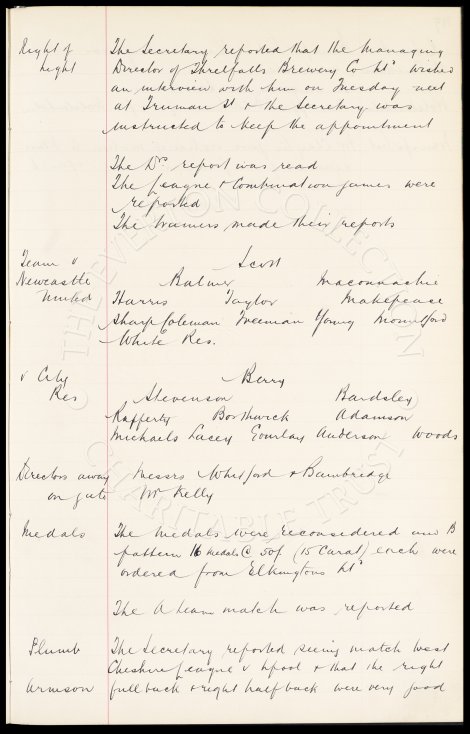 Right of The Secretary reported that the Managing
Light Director of Threlfalls Brewery Co Ltd wished
an interview with him on Tuesday next
at Truman St & the Secretary was
instructed to keep the appointment
The Drs report was read
The League & Combination games were
reported
The trainers made their reports
Team v Scott
Newcastle Balmer Maconnachie
United Harris Taylor Makepeace
Sharp Coleman Freeman Young Mountford
White Res.
v City Berry
Res Stevenson Bardsley
Rafferty Borthwick Adamson
Michaels Lacey Gourlay Anderson Woods
Directors away Messrs Whitford & Bainbridge
on gate Mr Kelly
Medals The medals were reconsidered and B
pattern 16 medals @ 50/- (15 Carat) each were
ordered from Elkingtons Ltd
The A team match was reported
Plumb The Secretary reported seeing match West
Cheshire League v Lpool & that the right
Armson full back & right half back were very good
THE EVERTON COLLECTION
CHARITABLE TRUST